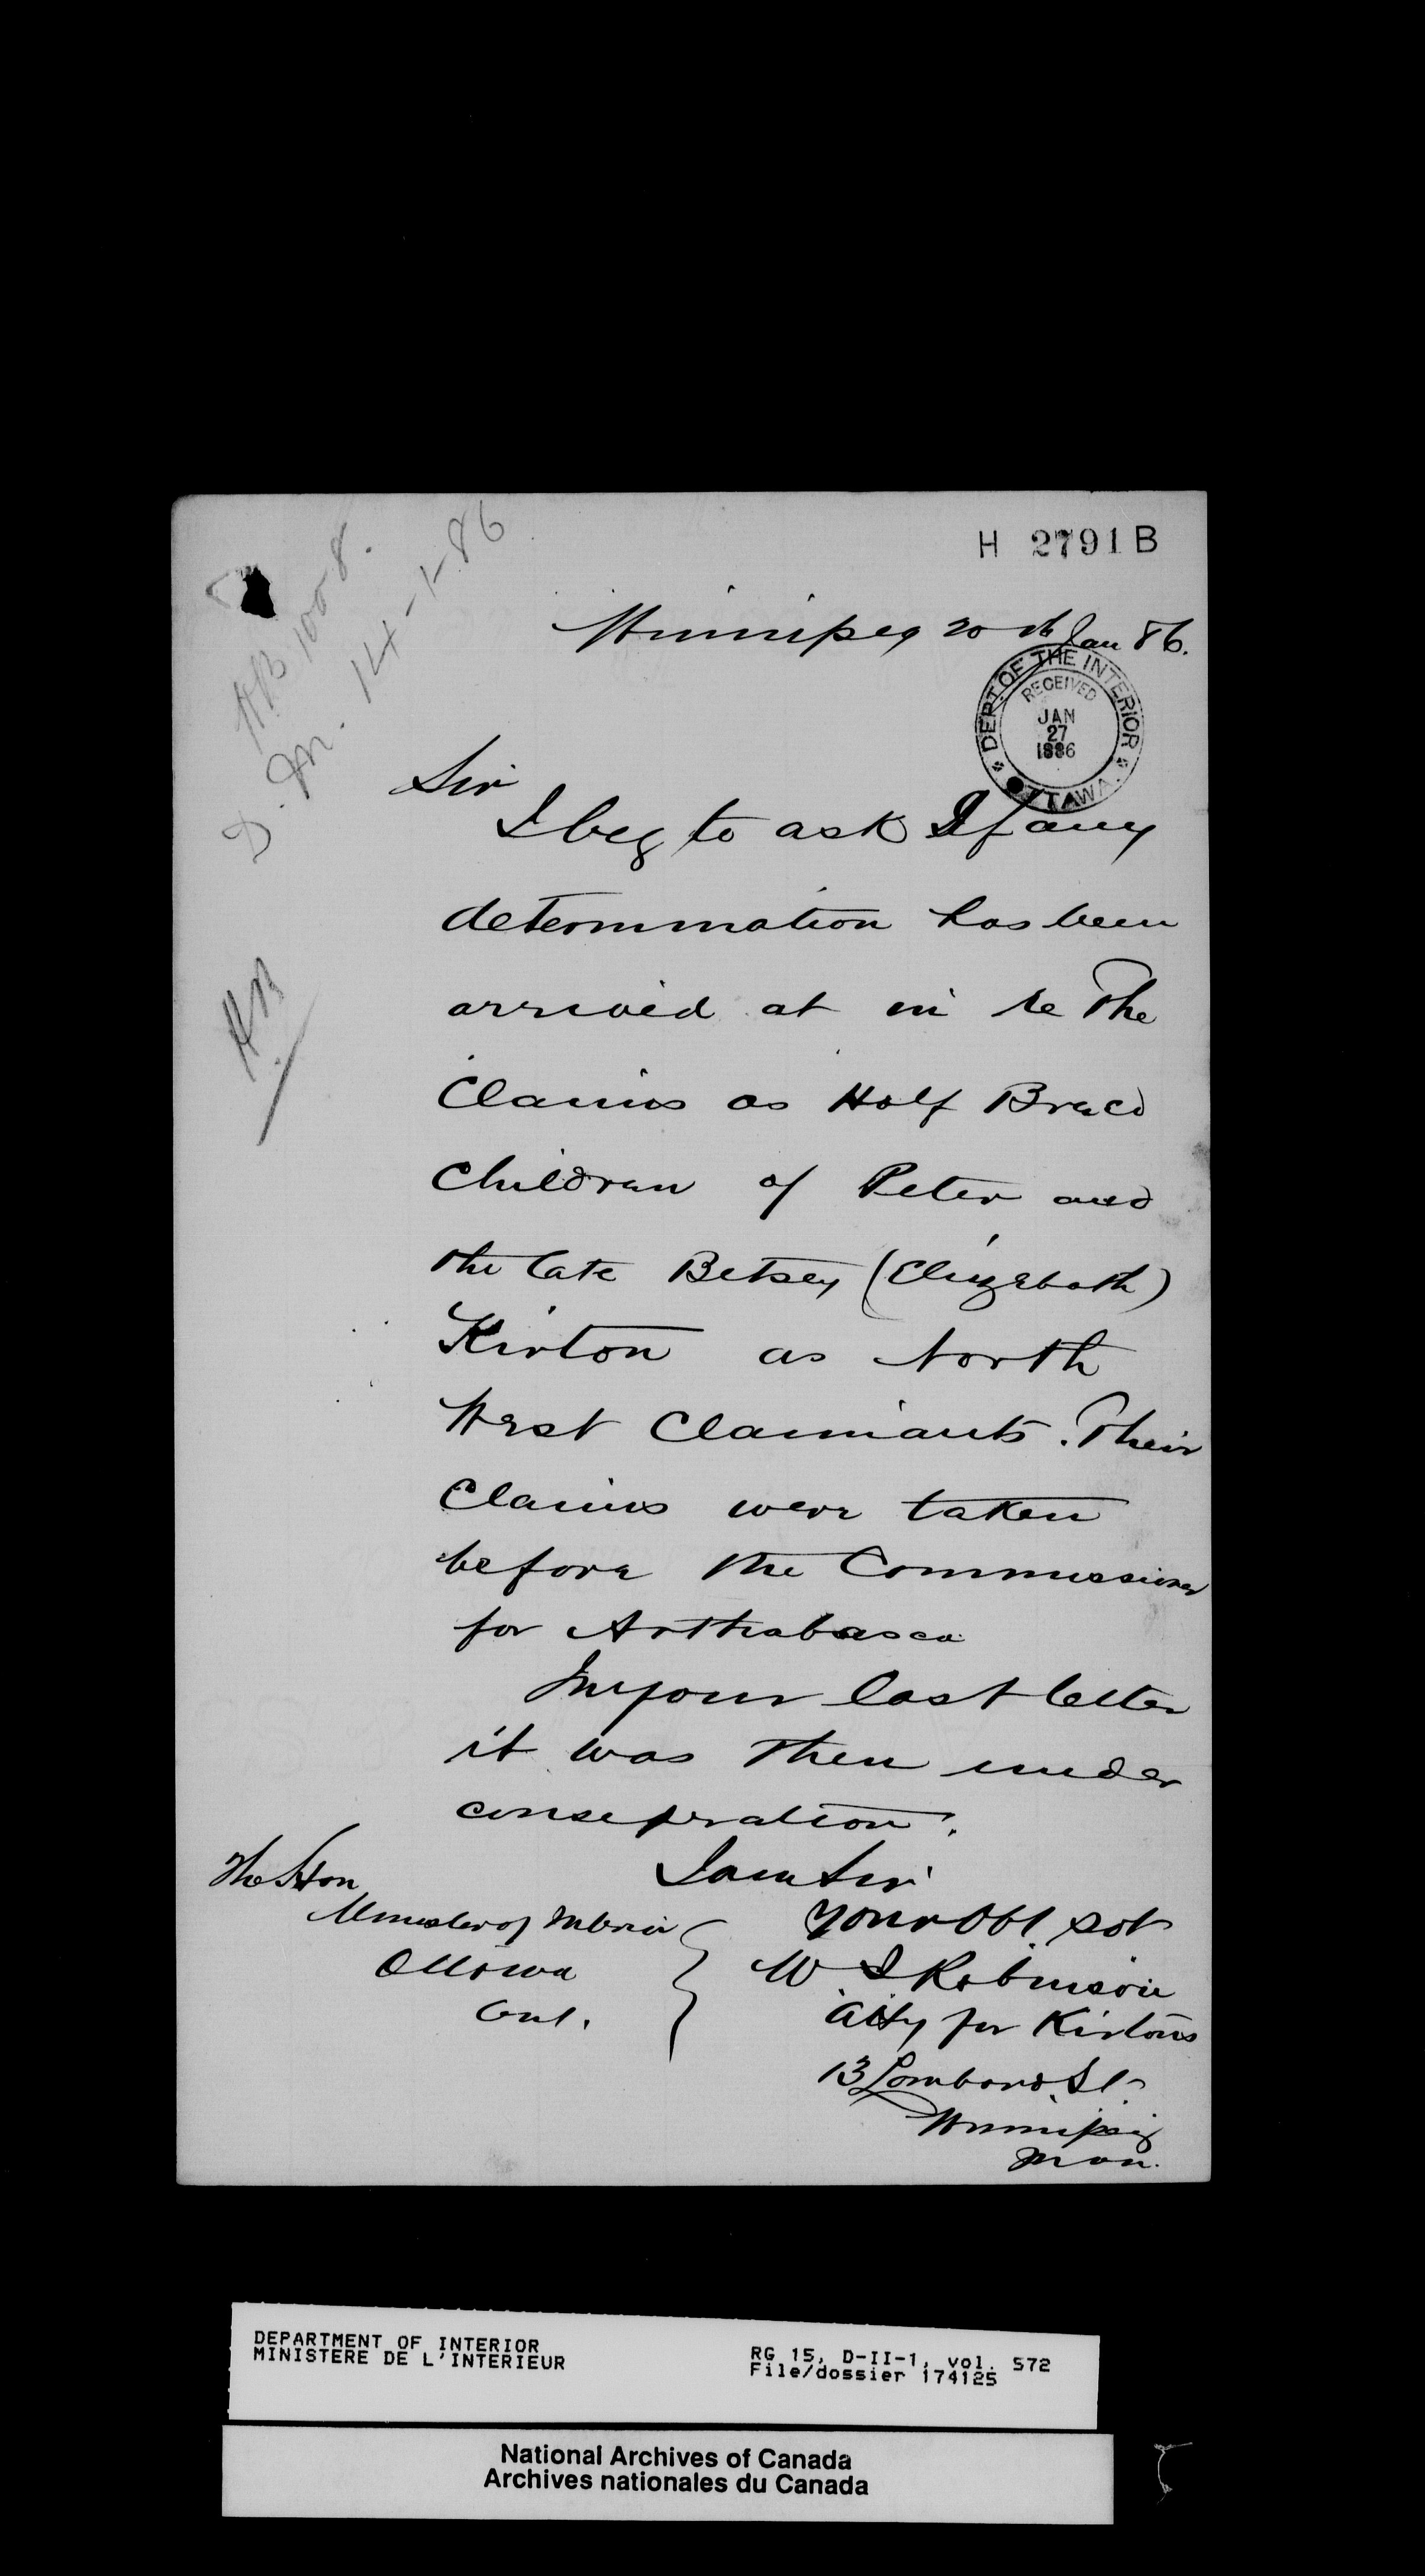 H 2791 B
HB 1008.
D. M. 14-1-86
HB
Winnipeg 20th Jan 86.
DEPT. OF THE INTERIOR
RECEIVED
JAN
27
1886
OTTAWA
Sir
I beg to ask If any
determination has been
arrived at in re The
Claims as Half Breed
Children of Peter and
the late Betsey (Elizabeth)
Kirton as North
West Claimants. Their
Claims were taken
before the Commissioner
for Arthabasca
In your last letter
it was then under
I am Sir
Your Obt Svt
W. Robinson
Atty for Kirtons
13 Lombard St.
Winnipeg
Man.
The Hon
Minister of Interior
Ottawa
Ont.
DEPARTMENT OF INTERIOR
MINISTERE DE L'INTERIEUR
RG 15, D-II-1, vol. 572
File/dossier 174125
National Archives of Canada
Archives nationales du Canada